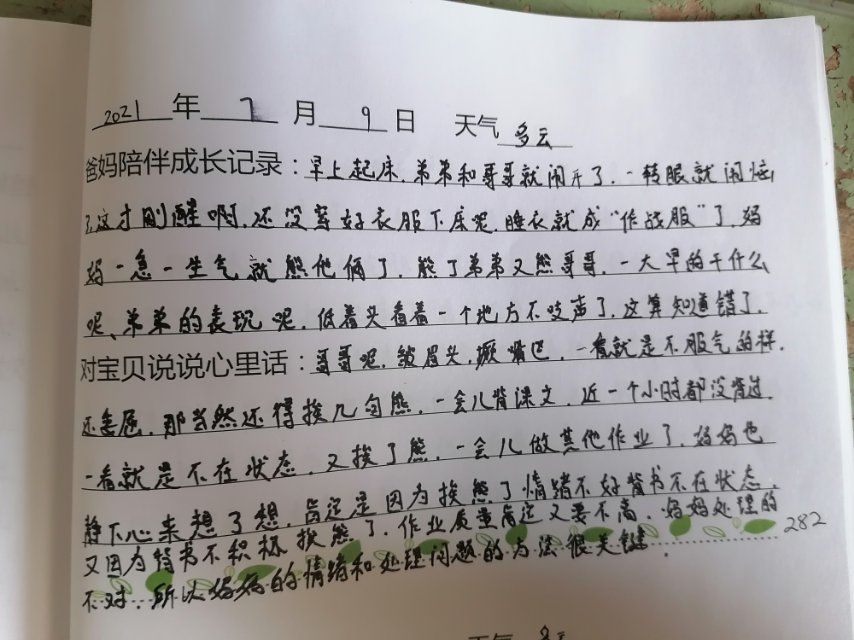 2021年7月9日 天气多云
爸妈陪伴成长记录：早上起床，弟弟和哥哥就闹开了，一转眼就闹恼
了，这才刚醒啊，还没穿好衣服下床呢，睡衣就成“作战服”了，妈
妈一急一生气就熊他俩了，熊了弟弟又熊哥哥，一大早的干什么
呢、弟弟的表现呢，低着头看着一个地方不吱声了，这算知道错了，
对宝贝说说心里话：哥哥呢，皱眉头，撅嘴巴，一看就是不服气的样，
还委屈，那当然还得挨几句熊，一会儿背课文，近一个小时都没背过，
一看就是不在状态，又挨了熊，一会儿做其他作业了，妈妈也
静下心来想了想，肯定是因为挨熊了情绪不好背书不在状态，
又因为背书不积极挨熊了，作业质量肯定又要不高，妈妈处理的
不对，所以妈妈的情绪和处理问题的方法很关键．
282